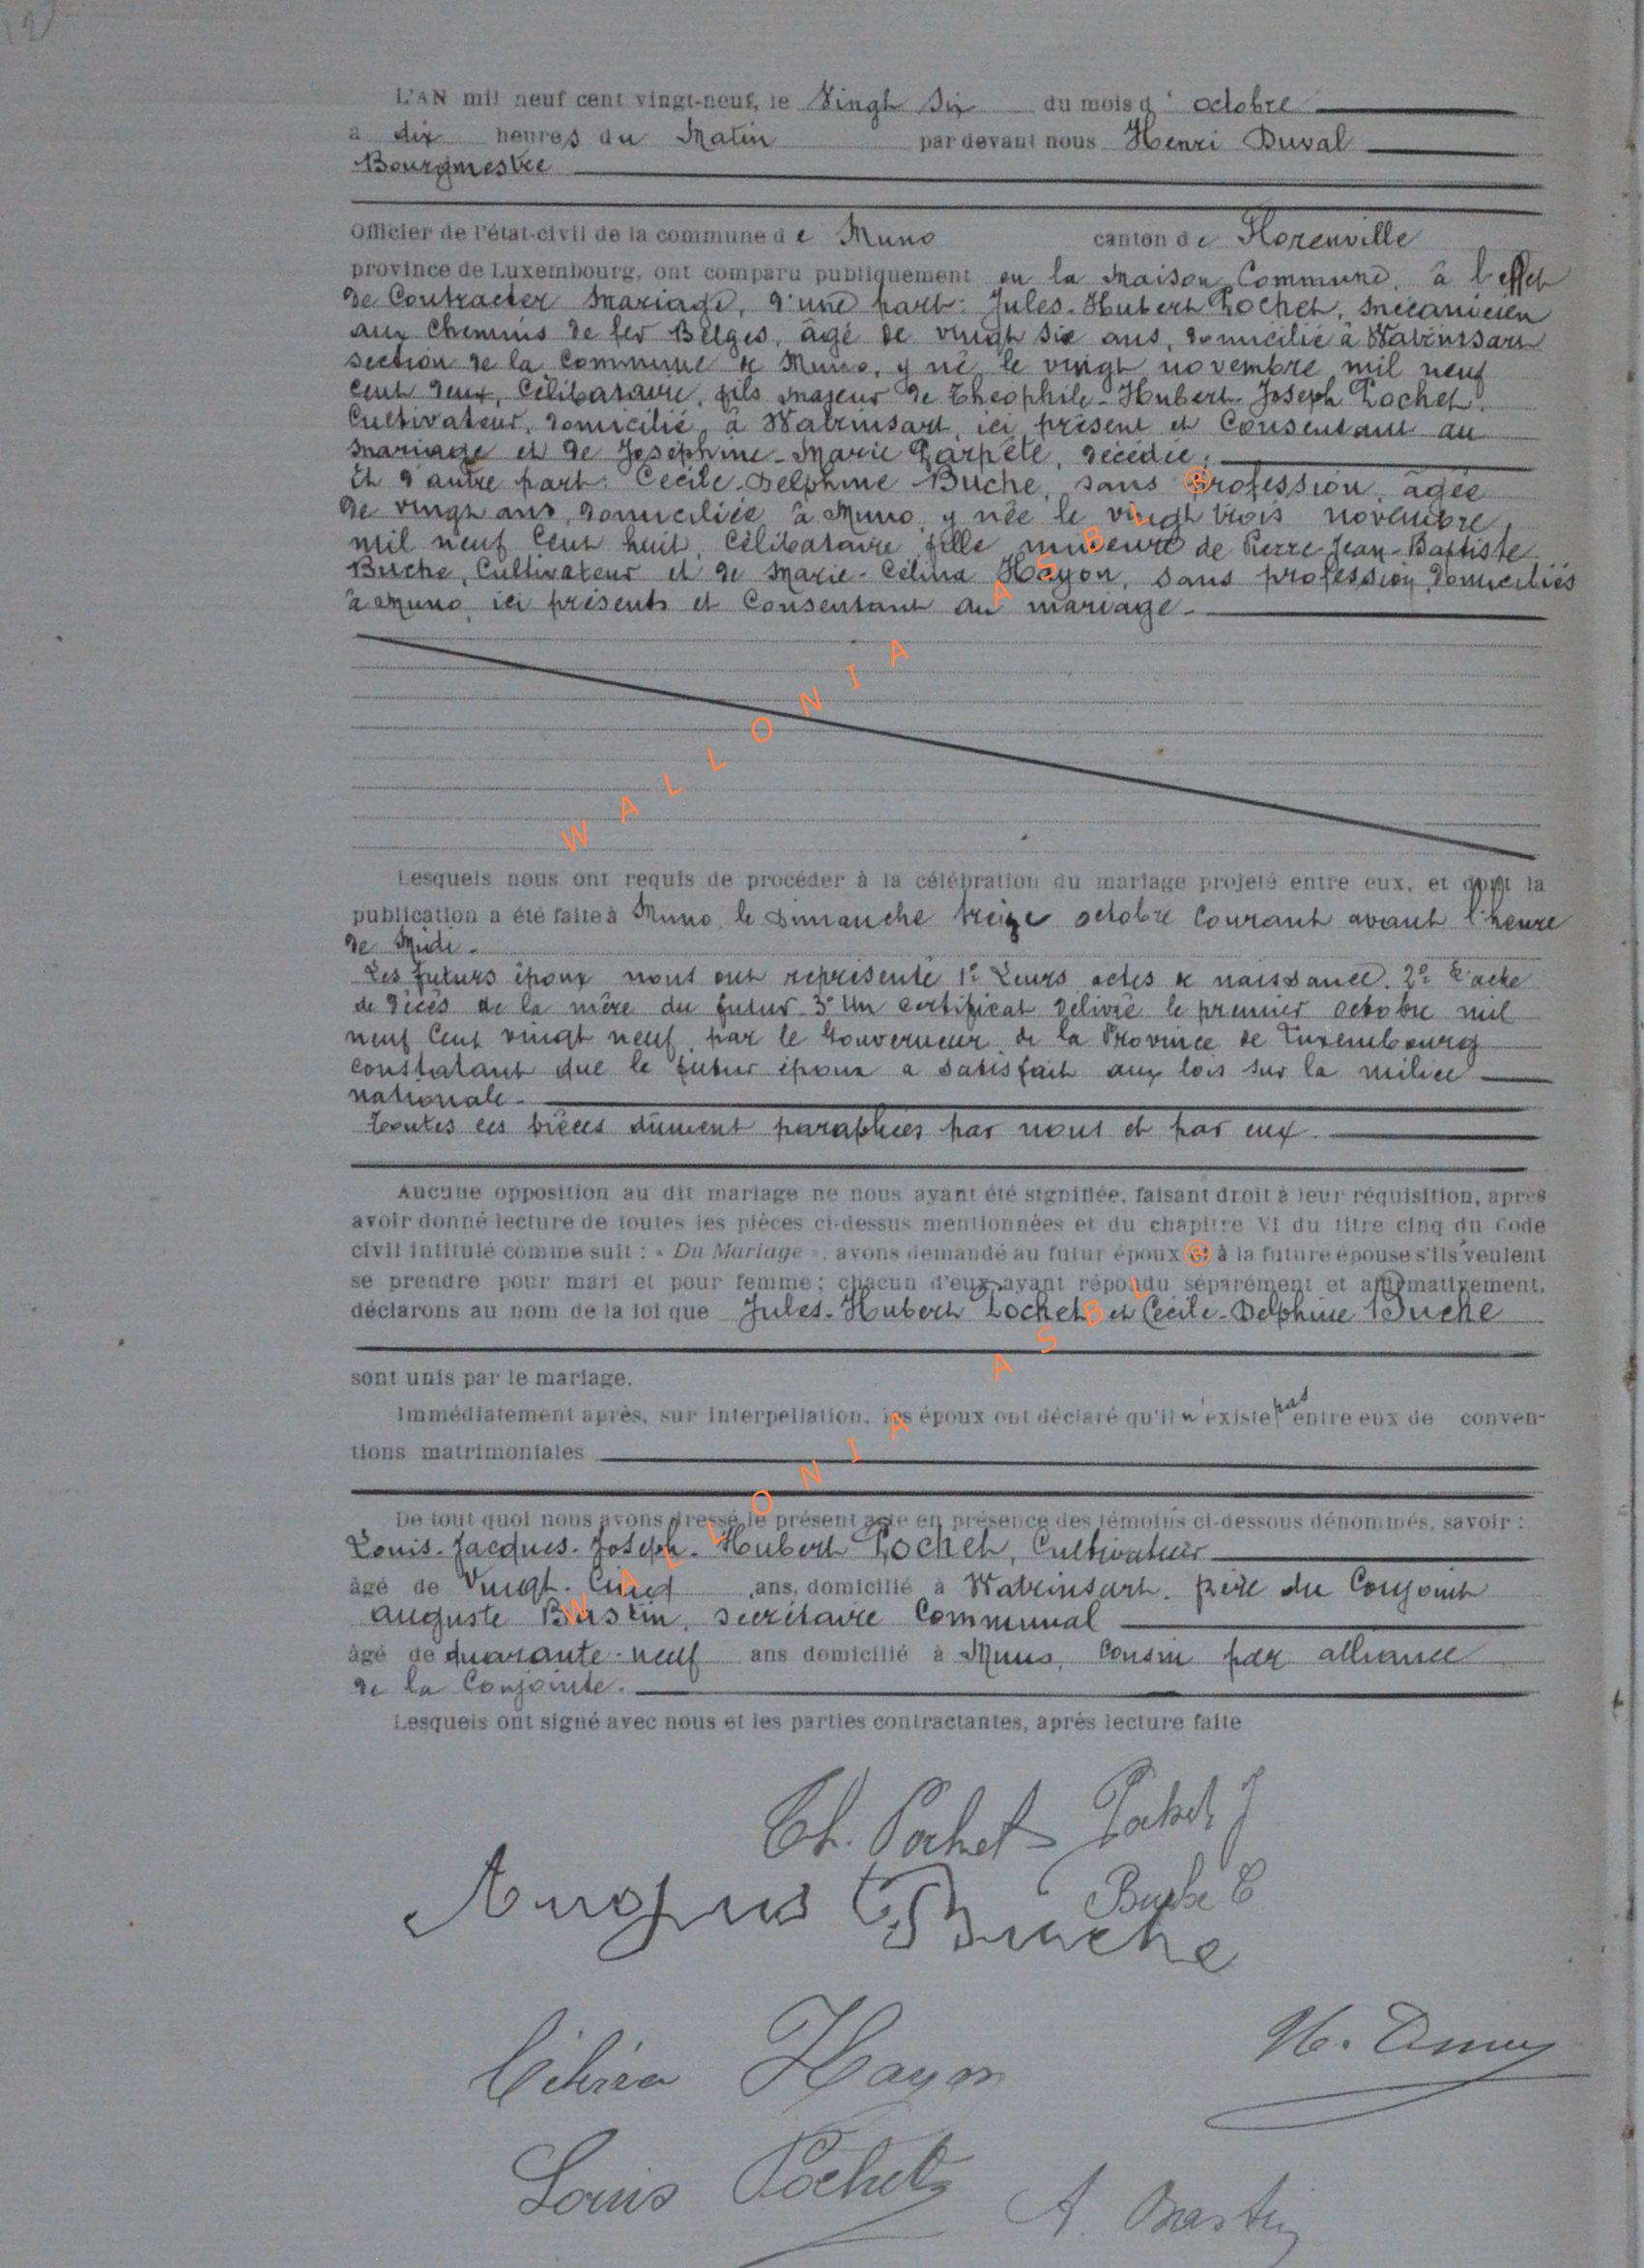 L'AN mil neuf cent vingt-neuf, le Vingt six du mois d' octobre
à dix heures du Matin par devant nous Henri Duval
Bourgmestre
Officier de l'état-civil de la commune de Muno canton de Florenville
province de Luxembourg, ont comparu publiquement en la Maison Commune, à l'effet
de Contracter Mariage, d'une part: Jules-Hubert Pochet, mécanicien
aux Chemins de fer Belges, âgé de vingt six ans, domicilié à Watrinsart
section de la Commune de Muno, y né le vingt novembre mil neuf
cent deux, Célibataire, fils majeur de Théophile-Hubert-Joseph Pochet,
Cultivateur, domicilié à Watrinsart, ici présent et Consentant au
mariage et de Joséphine-Marie Parpète, décédée;
Et d'autre part: Cécile-Delphine Buche, sans profession, âgée
de vingt ans, domiciliée à Muno, y née le vingt trois novembre,
mil neuf Cent huit, Célibataire, fille mineure de Pierre-Jean-Baptiste
Buche, Cultivateur et de Marie-Célina Hayon, sans profession, domiciliés
à Muno, ici présents et Consentant au mariage.
Lesquels nous ont requis de procéder à la célébration du mariage projeté entre eux, et dont la
publication a été faite à Muno, le Dimanche treize octobre Courant avant l'heure
de Midi.
Les futurs époux nous ont représenté 1° Leurs actes de naissance. 2° L'acte
de décès de la mère du futur. 3° Un certificat délivré le premier octobre mil
neuf Cent vingt neuf, par le Gouverneur de la Province de Luxembourg
constatant que le futur époux a satisfait aux lois sur la milice
nationale.
Toutes ces pièces dûment paraphées par nous et par eux.
Aucune opposition au dit mariage ne nous ayant été signifiée, faisant droit à leur réquisition, après
avoir donné lecture de toutes les pièces ci-dessus mentionnées et du chapitre VI du titre cinq du Code
civil intitulé comme suit : « Du Mariage », avons demandé au futur époux et à la future épouse s'ils veulent
se prendre pour mari et pour femme; chacun d'eux ayant répondu séparément et affirmativement,
déclarons au nom de la loi que Jules-Hubert Pochet et Cécile-Delphine Buche
sont unis par le mariage.
Immédiatement après, sur interpellation, les époux ont déclaré qu'il n'existe pas entre eux de conven-
tions matrimoniales
De tout quoi nous avons dressé le présent acte en présence des témoins ci-dessous dénommés, savoir :
Louis-Jacques-Joseph-Hubert Pochet, Cultivateur
âgé de Vingt-Cinq ans, domicilié à Watrinsart. père du Conjoint
Auguste Bastin, secrétaire Communal
âgé de quarante-neuf ans domicilié à Muno, Cousin par alliance
de la Conjointe.
Lesquels ont signé avec nous et les parties contractantes, après lecture faite
Th. Pochet Pochet J
Buche C
Buche
Célina Hayon
Louis Pochet A. Bastin
WALLONIA ASBL
WALLONIA ASBL